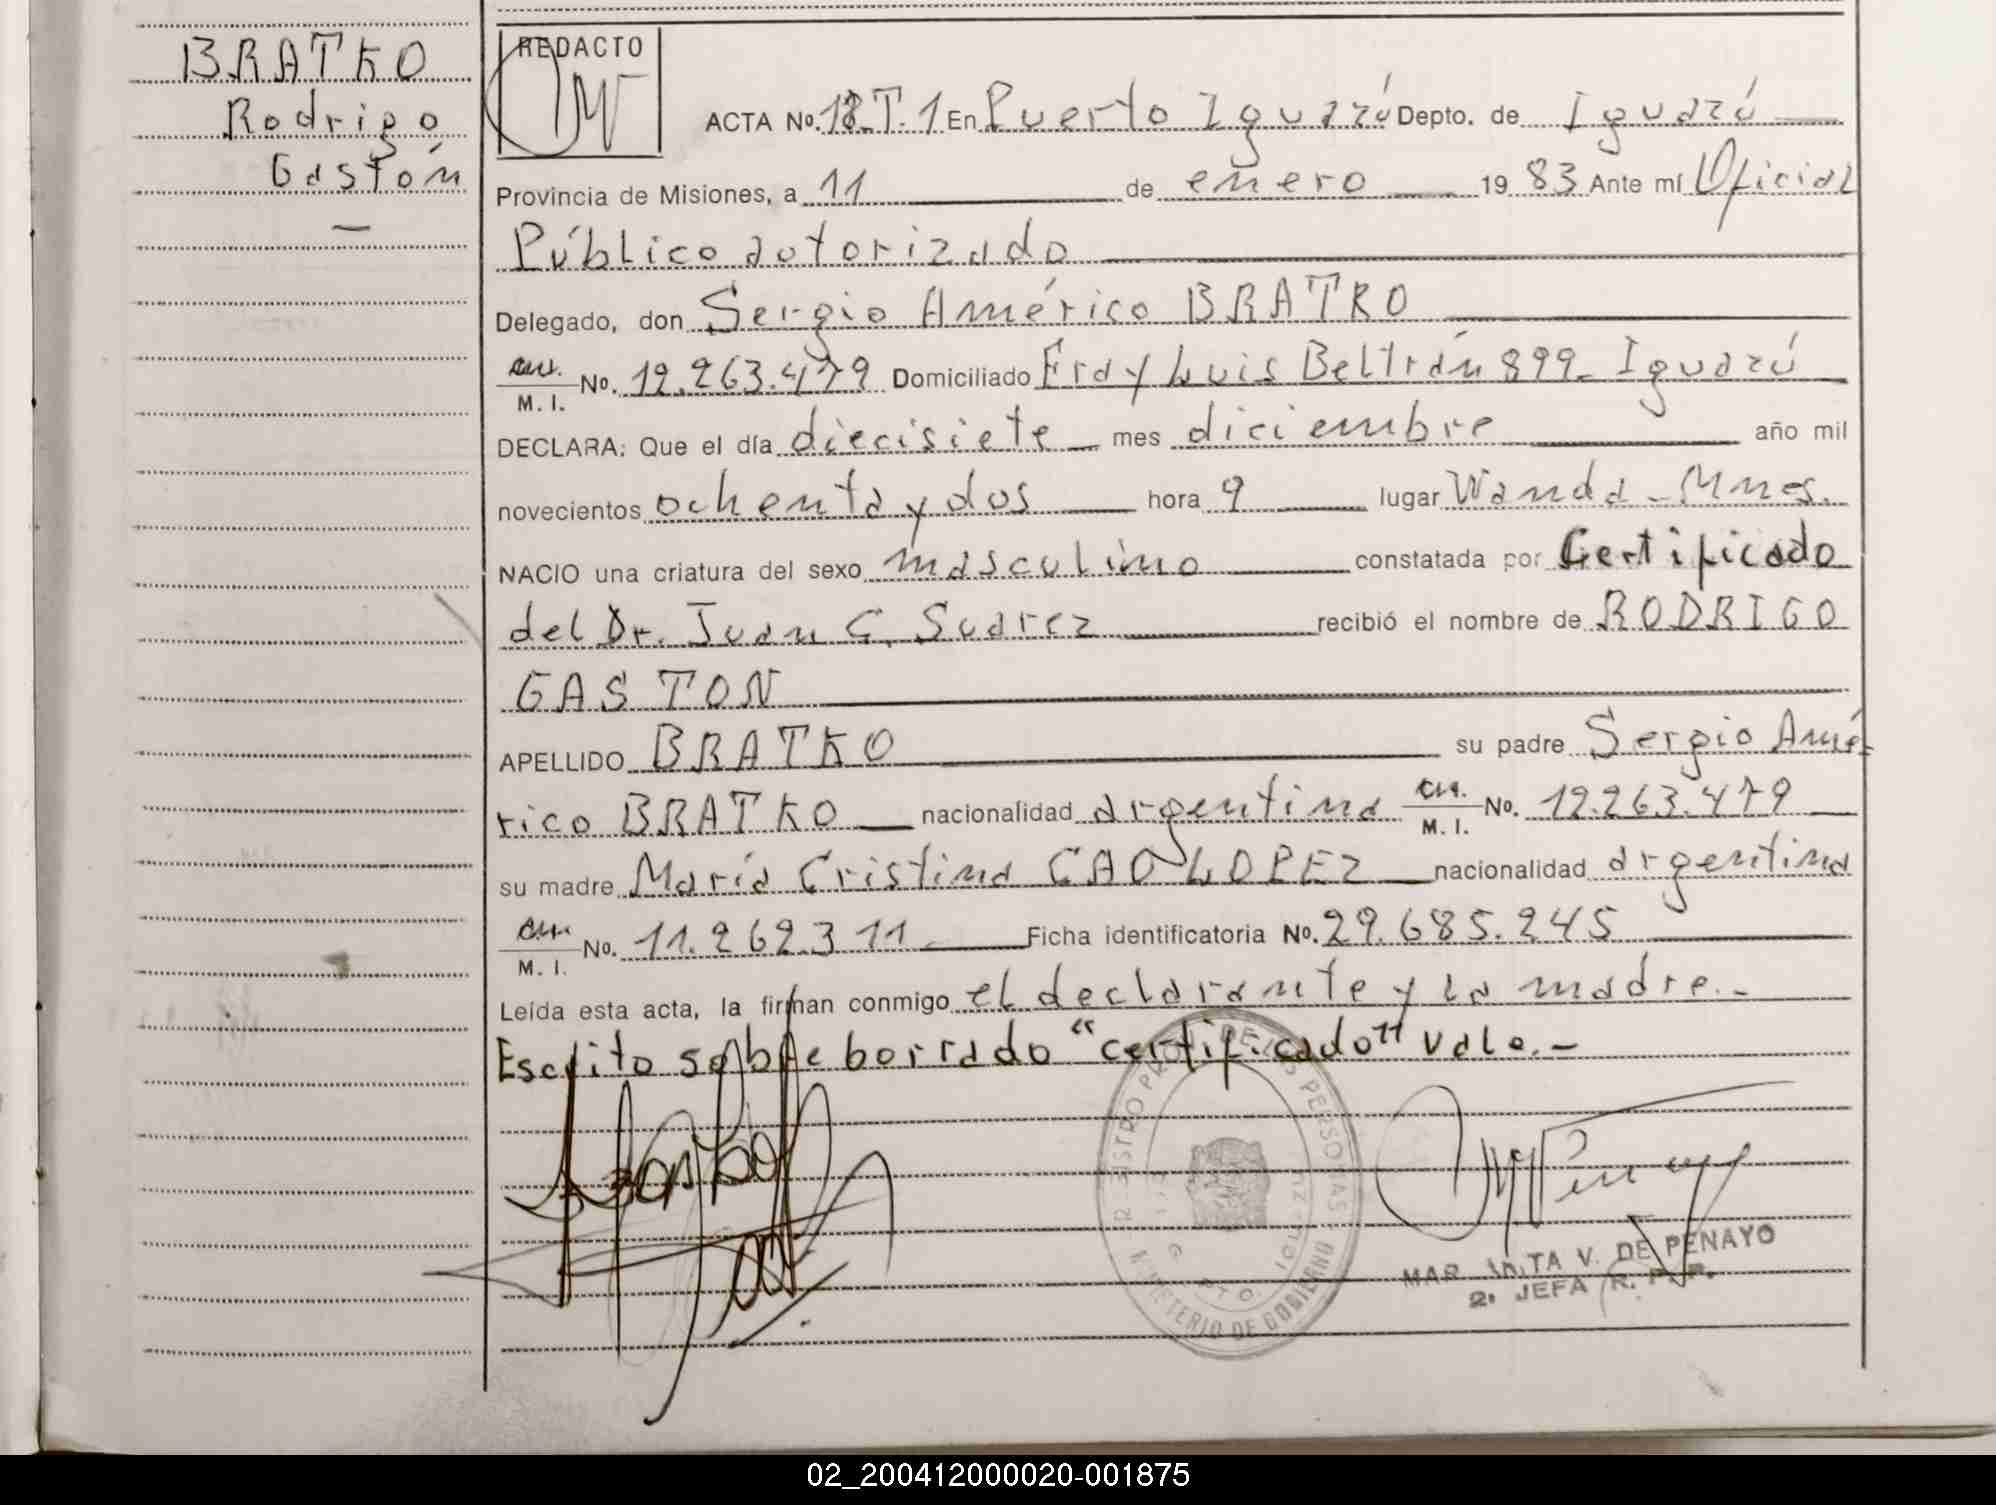 BRATKO
Rodrigo
Gastón
REDACTO
ACTA No. 18 T. 1 En Puerto Iguazú Depto. de Iguazú
Provincia de Misiones, a 11 de enero 1983 Ante mí Oficial
Público autorizado
Delegado, don Sergio Américo BRATKO
M. I. No. 12.263.479 Domiciliado Fray Luis Beltrán 899 - Iguazú
DECLARA: Que el día diecisiete mes diciembre año mil
novecientos ochenta y dos hora 9 lugar Wanda - Mnes.
NACIO una criatura del sexo masculino constatada por Certificado
del Dr. Juan C. Suarez recibió el nombre de RODRIGO
GASTON
APELLIDO BRATKO su padre Sergio Amé-
rico BRATKO nacionalidad argentina M. I. No. 12.263.479
su madre María Cristina CAO LOPEZ nacionalidad argentina
M. I. No. 11.262.311 Ficha identificatoria No. 29.685.245
Leída esta acta, la firman conmigo el declarante y la madre.-
Escrito sobre borrado "certificado" vale.-
MINISTERIO DE GOBIERNO
V. DE PENAYO
2. JEFA R. P. P.
02_200412000020-001875